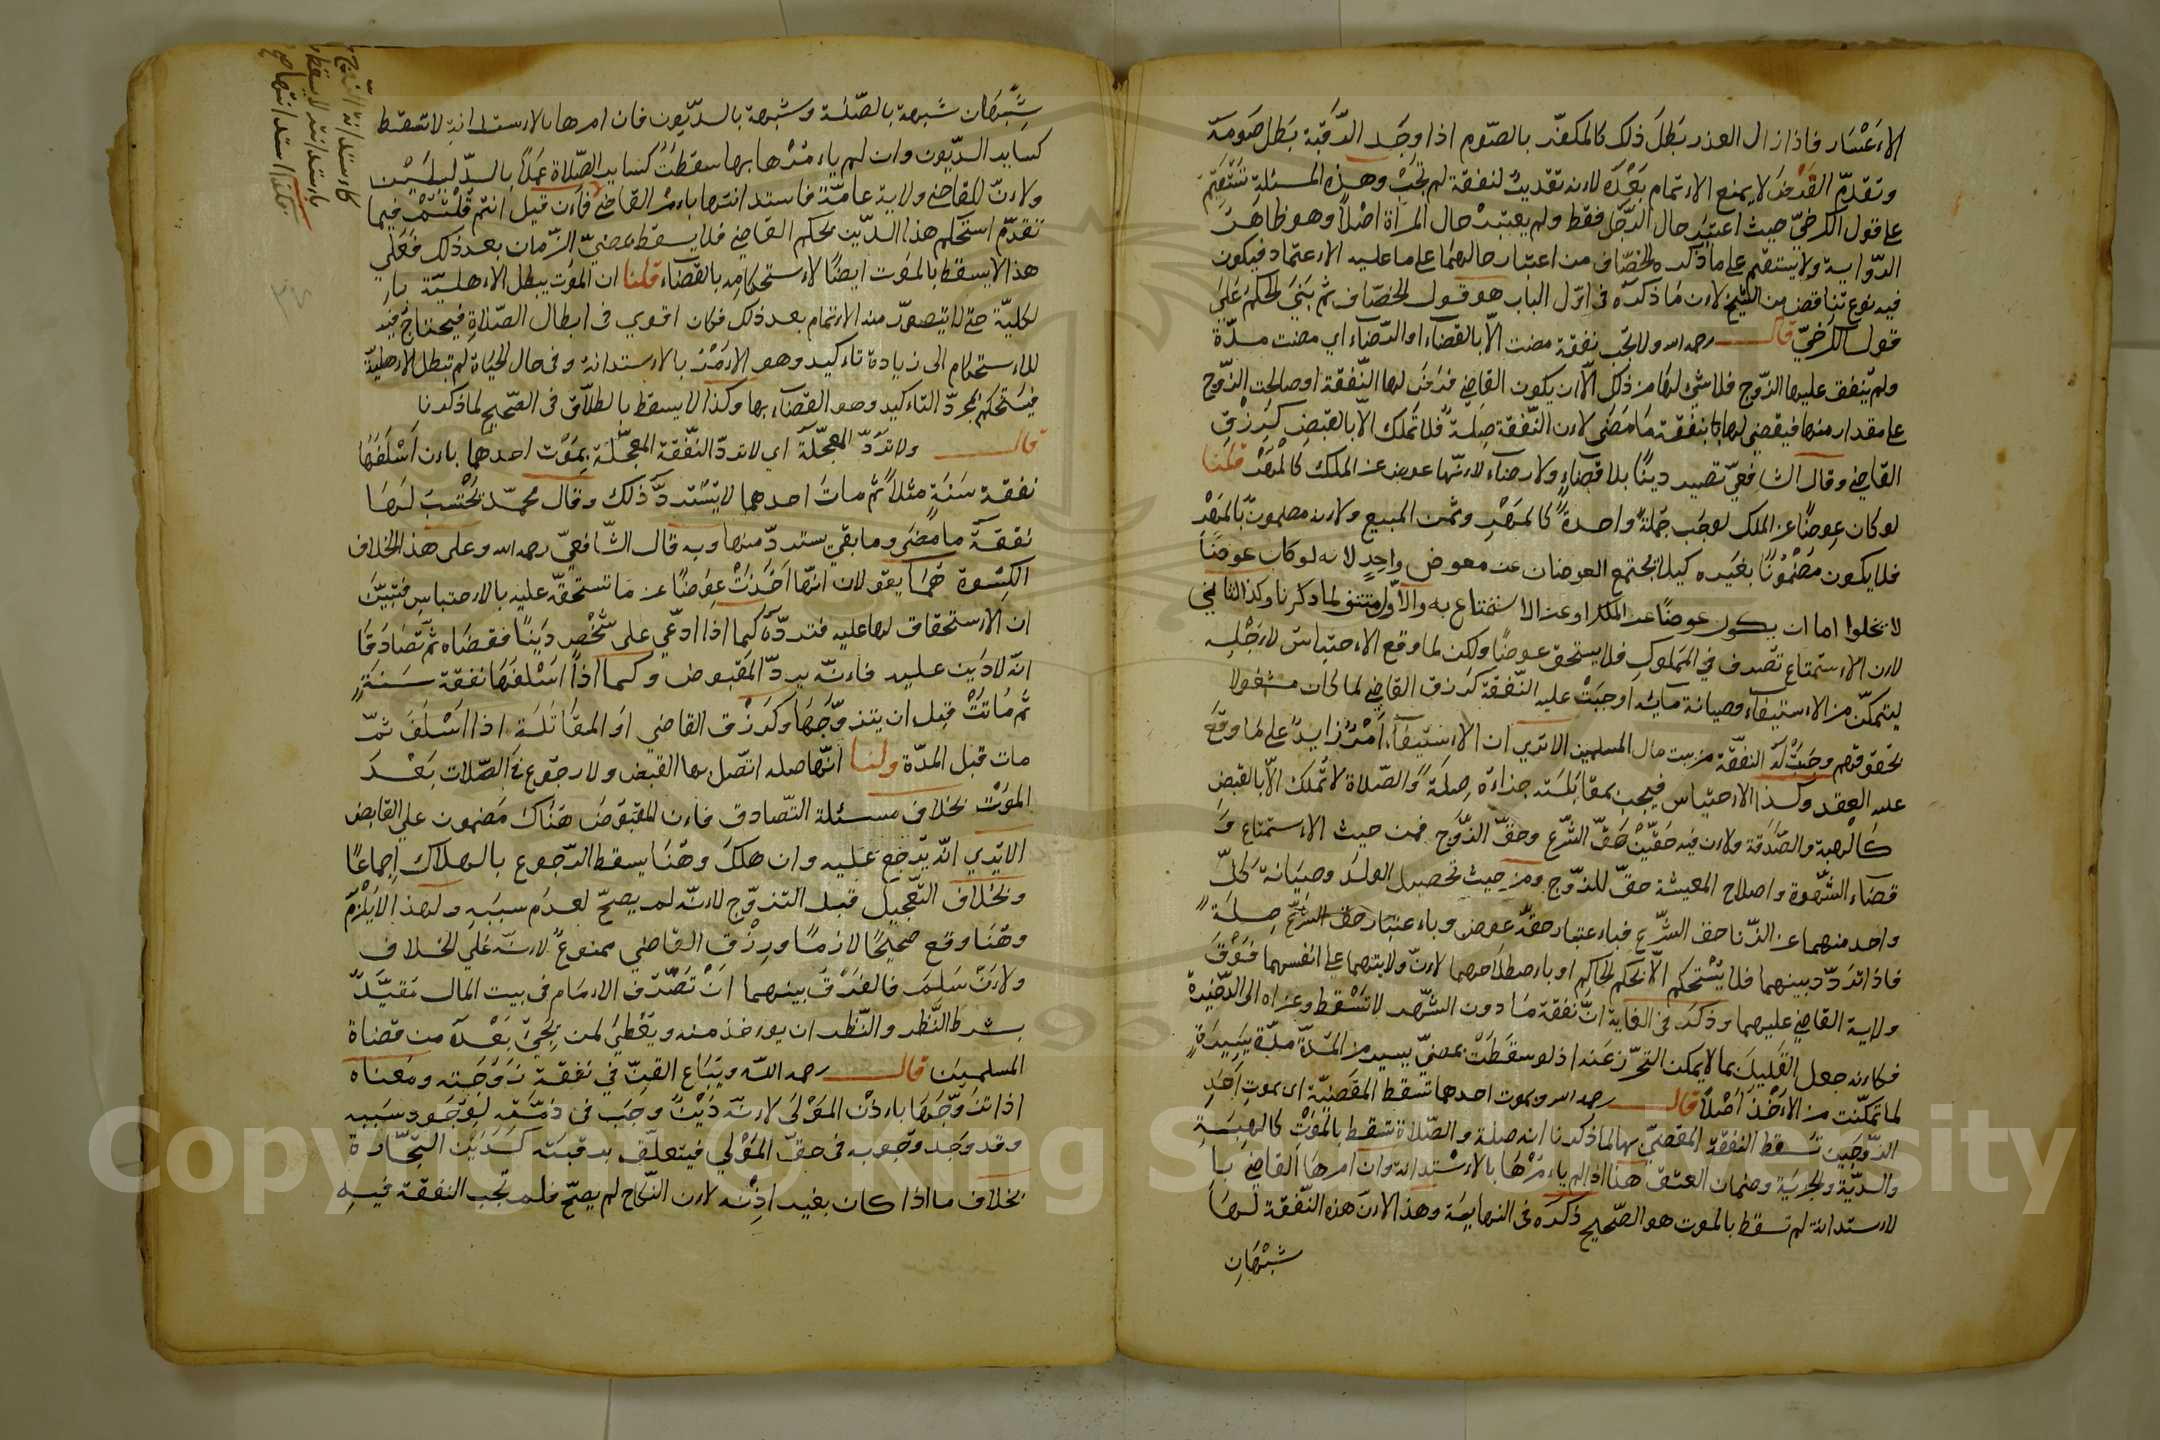 الاعسار فاذا زال العذر بطل ذلك كالمكفر بالصوم اذا وجد الرقبة بطل صومه
وتقدم الفرض لا يمنع الاتمام بعده لانه تقدير لنفقة لم تجب وهذه المسئلة تستقيم
على قول الكرخي حيث اعتبر حال الرجل فقط ولم يعتبر حال المرأة اصلا وهو ظاهر
الرواية ولا يستقيم على ما ذكره الخصاف من اعتبار حالهما على ما عليه الاعتماد فيكون
فيه نوع تناقض من الشيخ لان ما ذكره في اول الباب هو قول الخصاف ثم بنى الحكم على
قول الكرخي قال رحمه الله ولا تجب نفقة مضت الا بالقضاء او الرضاء اي مضت مدة
ولم ينفق عليها الزوج فلا شيء لها من ذلك الا ان يكون القاضي فرض لها النفقة او صالحت الزوج
على مقدار منها فيقضى لها بنفقة ما مضى لان النفقة صلة فلا تملك الا بالقبض كرزق
القاضي وقال الشافعي تصير دينا بلا قضاء ولا رضاء لانها عوض عن الملك كالمهر قلنا
لو كان عوضا عن الملك لوجب جملة واحدة كالمهر وثمن المبيع ولانه مضمون بالمهر
فلا يكون مضمونا بغيره كيلا يجتمع العوضان عن معوض واحد لانه لو كان عوضا
لا يخلوا اما ان يكون عوضا عن الملك او عن الاستمتاع به والاول منتف لما ذكرنا وكذا الثاني
لان الاستمتاع تصرف في المملوك فلا يستحق عوضا ولكن لما وقع الاحتباس لاجله
ليتمكن من الاستيفاء وصيانة مائه اوجبت عليه النفقة كرزق القاضي لما كان مشغولا
بحقوقهم وجبت له النفقة من بيت مال المسلمين الا ترى ان الاستيفاء امر زايد على ما وقع
عليه العقد وكذا الاحتباس فيجب بمقابلته جزاءه صلة والصلاة لا تملك الا بالقبض
كالهبة والصدقة ولان فيه حقين حق الشرع وحق الزوج فمن حيث الاستمتاع و
قضاء الشهوة واصلاح المعيشة حق للزوج ومن حيث تحصيل الولد وصيانة كل
واحد منهما عن الزنا حق الشرع فباعتبار حقه عوض وباعتبار حق الشرع صلة
فاذا تردد بينهما فلا يستحكم الا بحكم الحاكم او باصطلاحهما لان ولايتهما على انفسهما فوق
ولاية القاضي عليهما وذكر في الغاية ان نفقة ما دون الشهر لا تسقط وعزاه الى الذخيرة
فكانه جعل القليل مما لا يمكن التحرز عنه اذ لو سقطت بمضي يسير من المدة
لما تمكنت من الاخذ اصلا قال رحمه الله وبموت احدهما تسقط المقضية اي بموت احد
الزوجين تسقط النفقة المقضي بها لما ذكرنا انه صلة والصلاة تسقط بالموت كالهبة
والدية والجزية وضمان العتق هذا اذا لم يامرها بالاستدانة وان امرها القاضي با
لاستدانة لم تسقط بالموت هو الصحيح ذكره في النهاية وهذا لان هذه النفقة لها
شبهان
شبهان شبهة بالصلة وشبهة بالديون فان امرها بالاستدانة لا تسقط
كساير الديون وان لم يامرها بها سقطت كساير الصلاة عملا بالدليلين
ولان للقاضي ولاية عامة فاستدانتها بامر القاضي فان قيل انتم قلتم فيما
تقدم استحكم هذا الدين بحكم القاضي فلا يسقط بمضي الزمان بعد ذلك فعلى
هذا لا يسقط بالموت ايضا لاستحكامه بالقضاء قلنا ان الموت يبطل الاهلية با
لكلية حتى لا يتصور منه الاتمام بعد ذلك فكان اقوى في ابطال الصلاة فيحتاج فيه
للاستحكام الى زيادة تاكيد وهو الامر بالاستدانة وفي حال الحياة لم تبطل الاهلية
فيستحكم بمجرد التاكيد وهو القضاء بها وكذا لا يسقط بالطلاق في الصحيح لما ذكرنا
قال ولا ترد المعجلة اي لا ترد النفقة المعجلة بموت احدهما بان اسلفها
نفقة سنة مثلا ثم مات احدهما لا يسترد ذلك وقال محمد يحتسب لها
نفقة ما مضى وما بقي يسترد منها وبه قال الشافعي رحمه الله وعلى هذا الخلاف
الكسوة هما يقولان انها اخذت عوضا عن ما تستحقه عليه بالاحتباس فتبين
ان لا استحقاق لها عليه فترده كما اذا ادعى على شخص دينا فقضاه ثم تصادقا
انه لا دين عليه فانه يرد المقبوض وكما اذا اسلفها نفقة سنة
ثم ماتت قبل ان يتزوجها وكرزق القاضي او المقاتلة اذا اسلف ثم
مات قبل المدة ولنا انها صلة اتصل بها القبض ولا رجوع في الصلات بعد
الموت بخلاف مسئلة التصادق فان المقبوض هناك مضمون على القابض
الا ترى انه يرجع عليه وان هلك وهنا يسقط الرجوع بالهلاك اجماعا
وبخلاف التعجيل قبل التزوج لانه لم يصح لعدم سببه ولهذا لا يلزم
وهنا وقع صحيحا لازما ورزق القاضي ممنوع لانه على الخلاف
ولان سلم فالفرق بينهما ان تصرف الامام في بيت المال مقيد
بشرط النظر والنظر ان يوخذ منه ويعطى لمن يجئ بعده من قضاة
المسلمين قال رحمه الله ويباع القن في نفقة زوجته ومعناه
اذا تزوجها باذن المولى لانه دين وجب في ذمته لوجود سببه
وقد وجد وجوبه في حق المولي فيتعلق برقبته كدين التجارة
بخلاف ما اذا كان بغير اذنه لان النكاح لم يصح فلم تجب النفقة فيه
Copyright © King Saud University